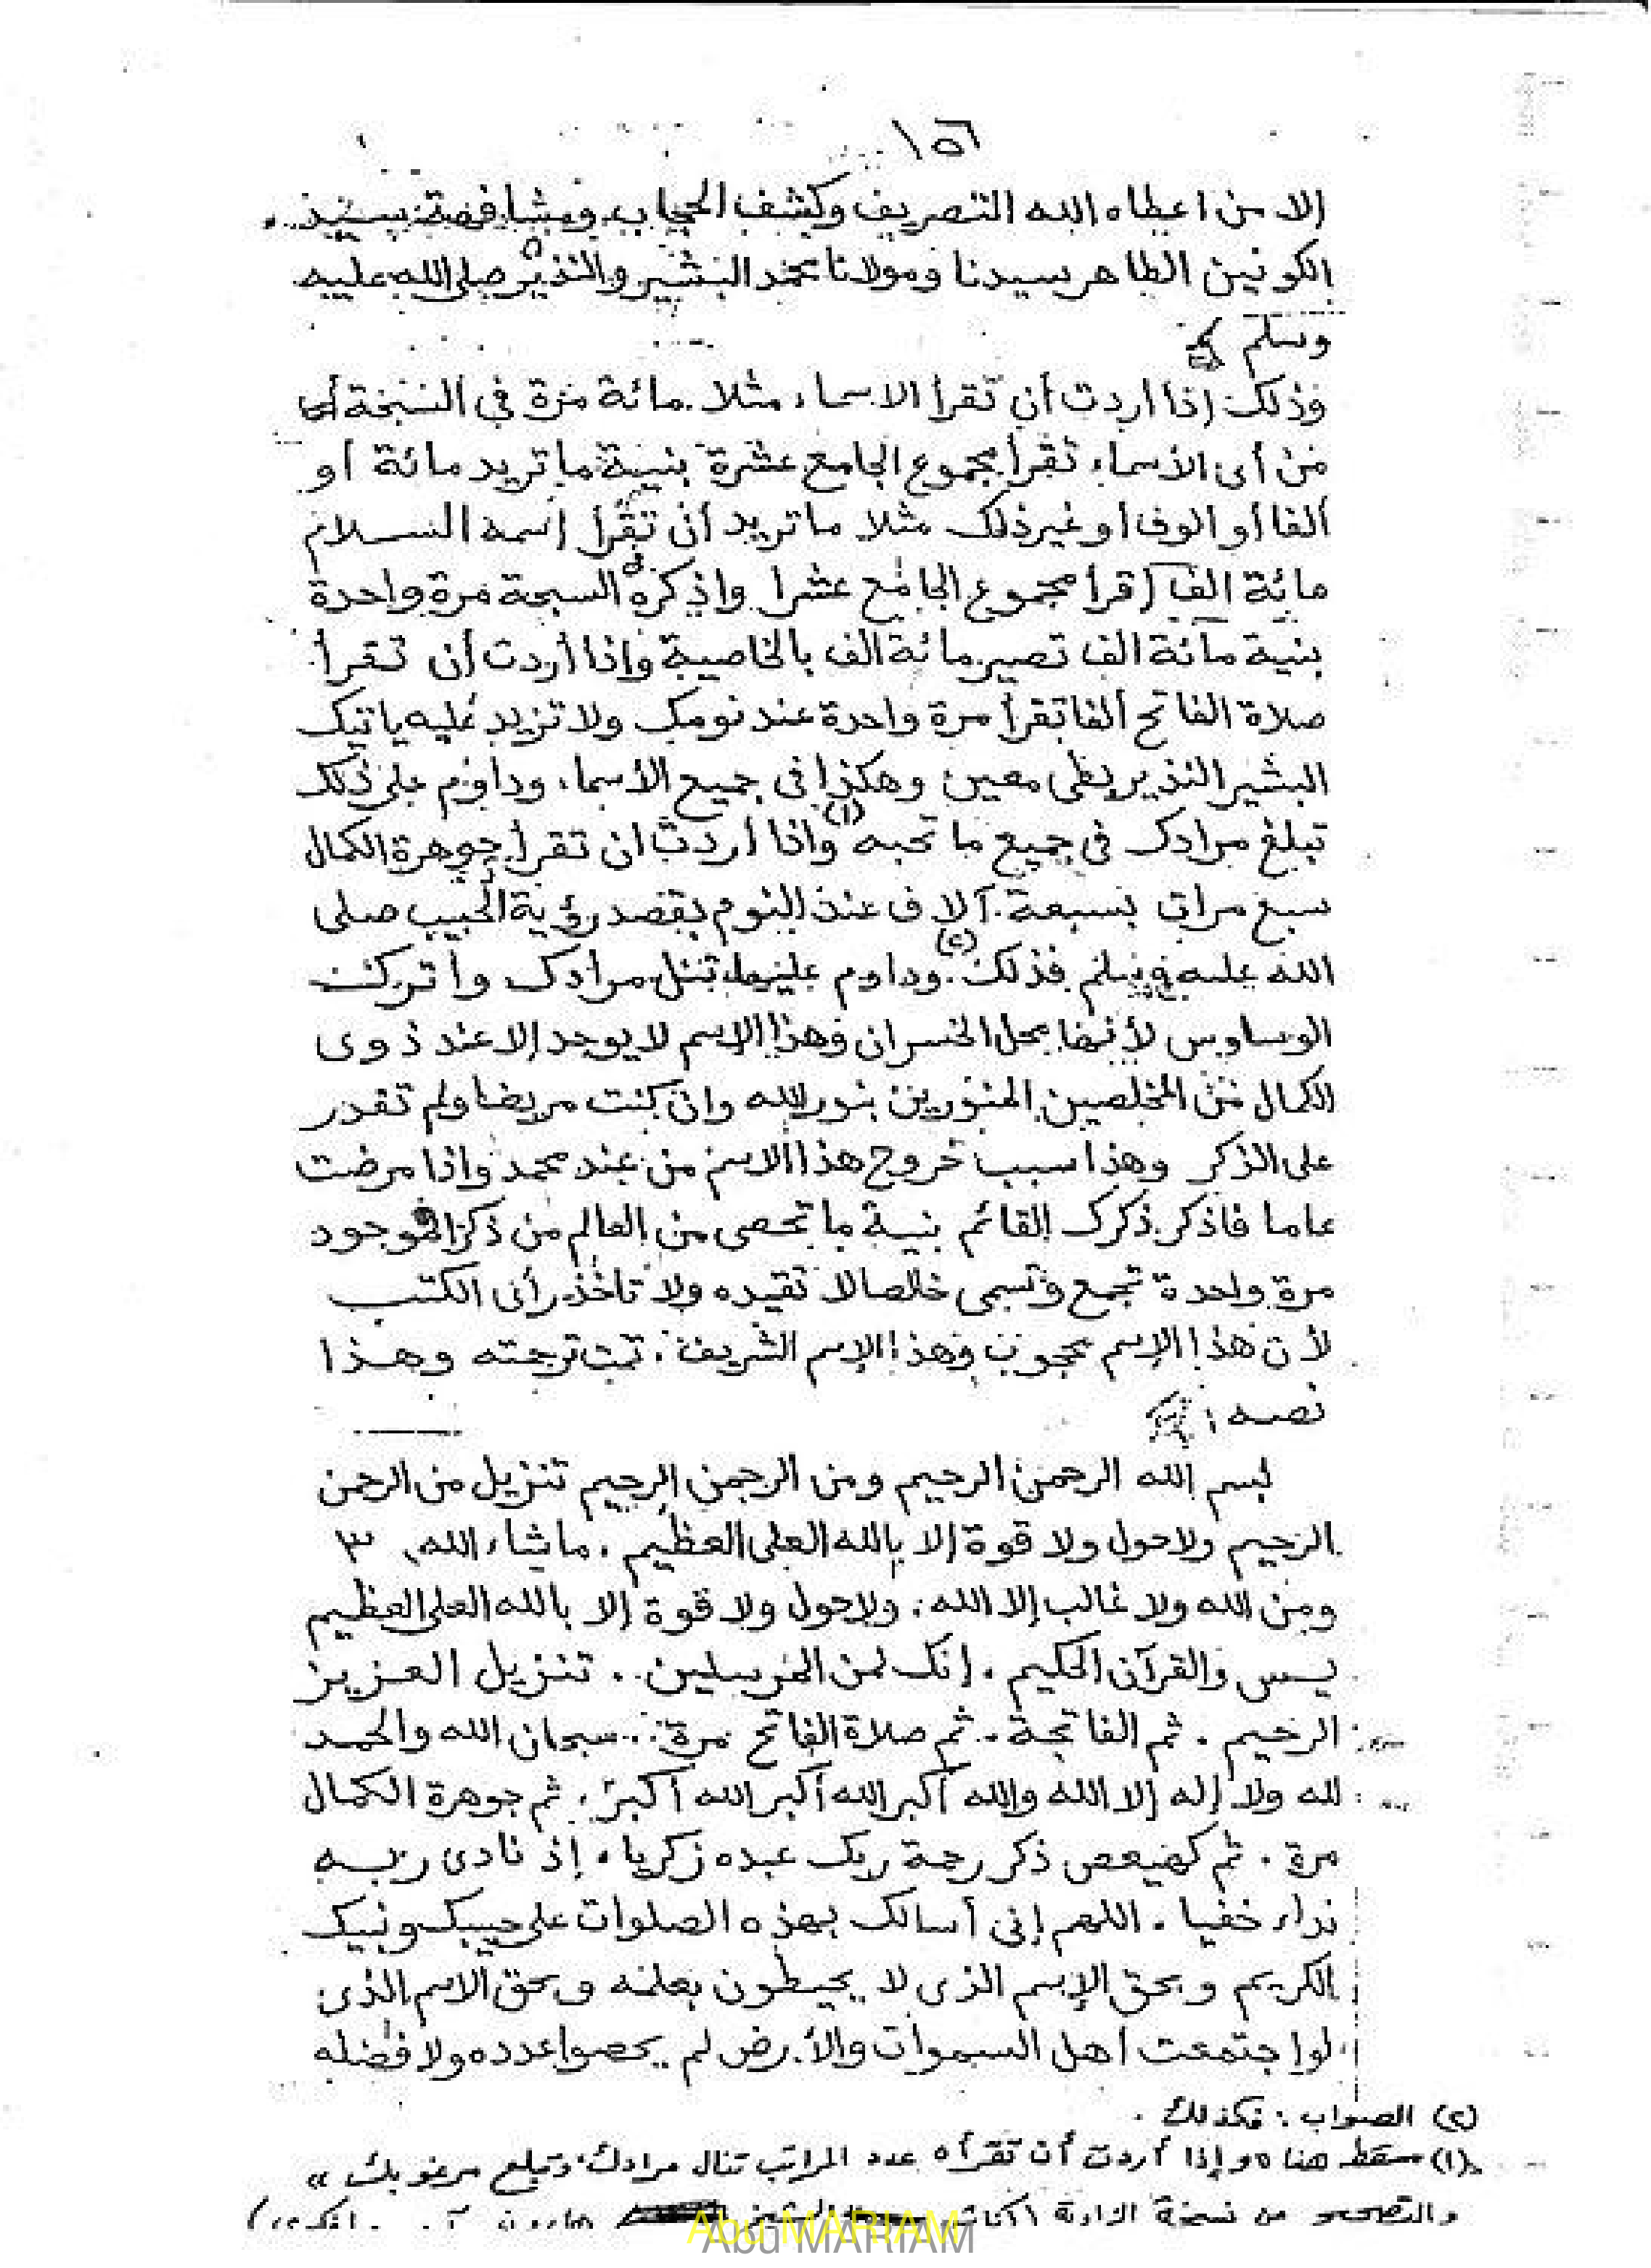 ١٥٦
إلا من اعطاه الله التصريف وكشف الحجاب ومشافهة بسيد
الكونين الطاهر سيدنا ومولانا محمد البشير والنذير صلى الله عليه
وسلم
وذلك إذا أردت أن تقرأ الاسماء مثلا مائة مرة في السبحة
من أى الأسماء تقرأ مجموع الجامع عشرة بنية ما تريد مائة أو
ألفا أو الوف أو غير ذلك مثلا ما تريد أن تقرأ إسمه الســلام
مائة الف اقرأ مجموع الجامع عشرا واذكره السبحة مرة واحدة
بنية مائة الف تصير مائة الف بالخاصية وإذا أردت أن تقرأ
صلاة الفاتح ألفا تقرأ مرة واحدة عند نومك ولا تزيد عليه ياتيك
البشير النذير معين وهكذا فى جميع الأسماء وداوم على ذلك
تبلغ مرادك فى جميع ما تحبه (١) وإذا أردت ان تقرأ جوهرة الكمال
سبع مرات بسبعة آلاف عند النوم بقصد رؤية الحبيب صلى
الله عليه وسلم فذلك (٢). وداوم عليها تنل مرادك واتركت
الوساوس لأنها محل الخسران وهذا الاسم لا يوجد إلا عند ذوى
الكمال من المخلصين المنورين بنور الله وان كنت مريضا ولم تقدر
على الذكر وهذا سبب خروج هذا الاسم من عند محمد واذا مرضت
عاما فاذكر ذكرك القائم بنية ما تحصى من العالم من ذكر الموجود
مرة واحدة تجمع وتسمى خالصا لا تقيده ولا تاخذ رأى الكتب
لأن هذا الإسم محجوب وهذا الإسم الشريف. تمت ترجمته وهــذا
نصه :
بسم الله الرحمن الرحيم ومن الرحمن الرحيم تنزيل من الرحمن
الرحيم ولا حول ولا قوة إلا بالله العلى العظيم. ما شاء الله ٣
ومن الله ولا غالب إلا الله. ولا حول ولا قوة إلا بالله العلى العظيم
يــس والقرآن الحكيم. إنك لمن المرسلين. تنزيل العــزيز
الرحيم. ثم الفاتحة. ثم صلاة الفاتح مرة. سبحان الله والحمد
لله ولا إله إلا الله والله أكبر الله أكبر الله أكبر. ثم جوهرة الكمال
مرة. ثم كهيعص ذكر رحمة ربك عبده زكرياء. إذ نادى ربــه
نداء خفيا. اللهم إنى أسالك بهذه الصلوات على حبيبك ونبيك
الكريم وبحق الإسم الذى لا يحيطون بعلمه وبحق الاسم الذى
لو اجتمعت أهل السموات والأرض لم يحصوا عدده ولا فضله
(٢) الصواب : فكذلك.
(١) سقط هنا «وإذا أردت أن تقرأه عدد المراتب تنال مرادك وتبلغ مرغوبك»
والتصحيح من نسخة
Abu MARIAM